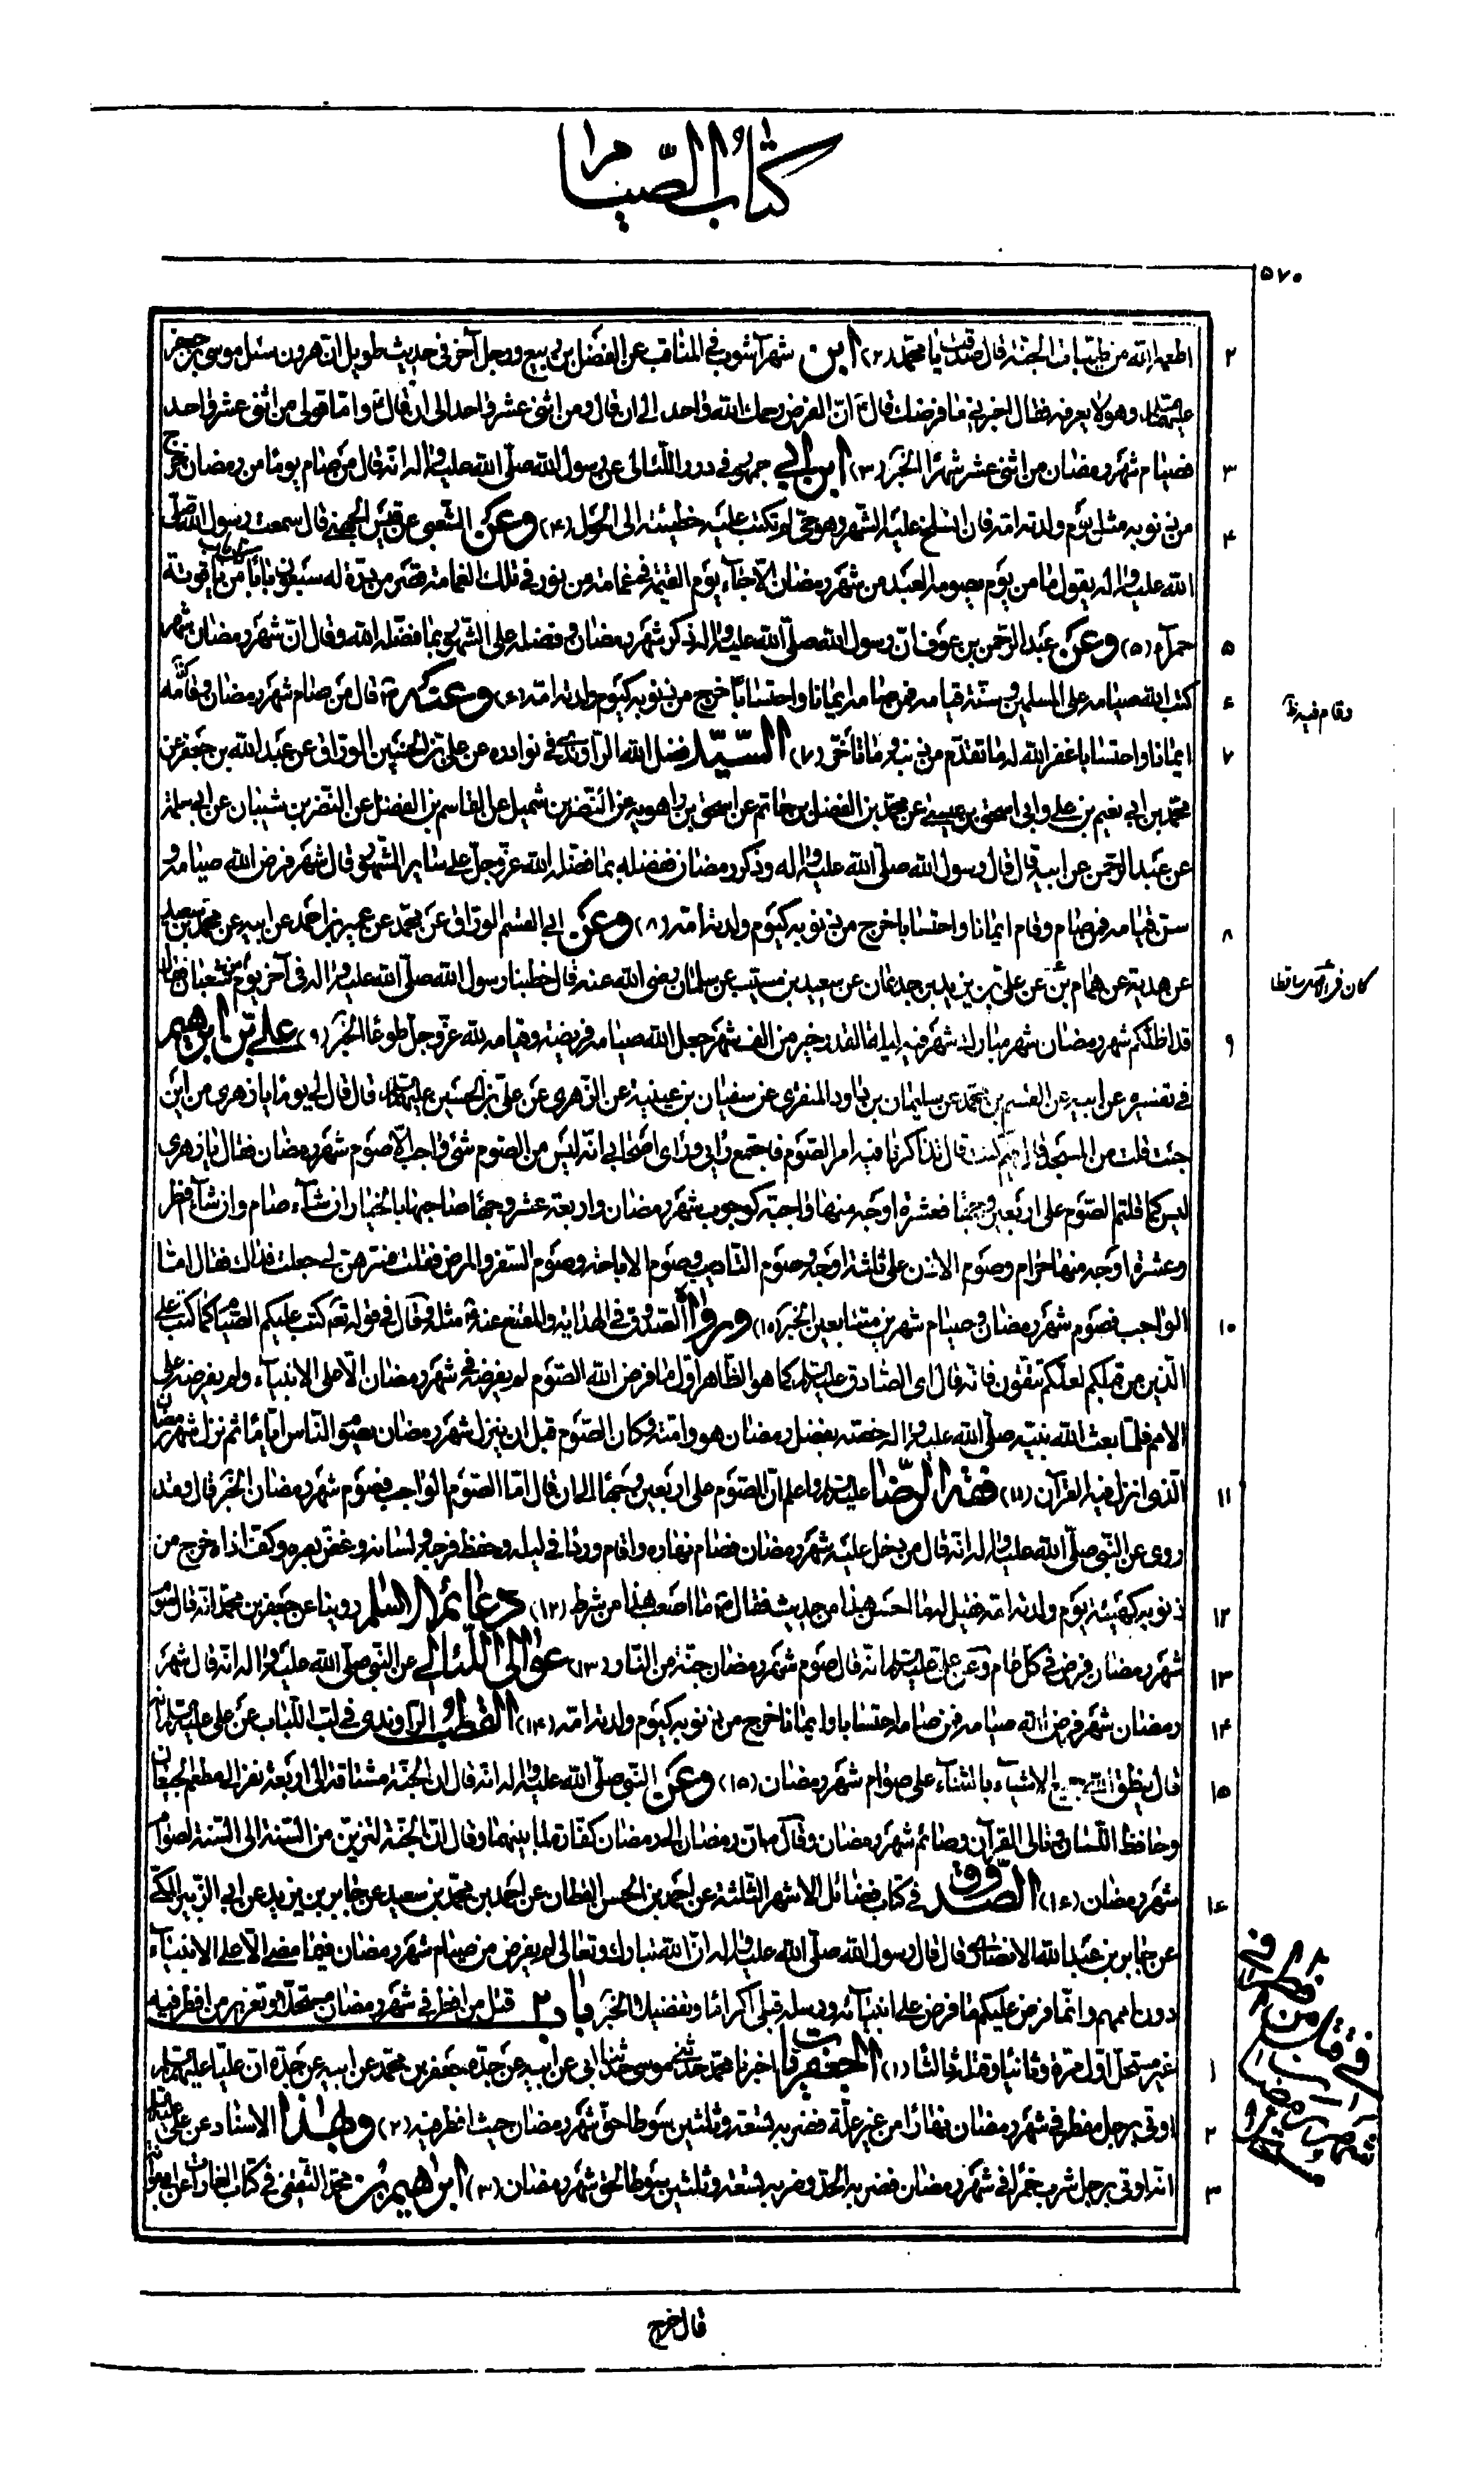 كتاب الصيام
۵۷۰
اطعمه الله من طيبات الجنة قال صدقت يا محمد (۲) ابن شهرآشوب في المناقب عن الفضل بن ربيع ورجل آخر في حديث طويل ان هرون سئل موسى بن جعفر
عليهما السلام وهو لا يعرفه فقال اخبرني ما فرضك قال ان الفرض رحمك الله واحد الى ان قال ومن اثنى عشر واحد الى ان قال واما قولى من اثنى عشر واحد
فصيام شهر رمضان من اثنى عشر شهرا الخبر (۳) ابن ابي جمهور في درر اللئالى عن رسول الله صلى الله عليه واله انه قال من صام يوما من رمضان خرج
من ذنوبه مثل يوم ولدته امه فان انسلخ عليه الشهر وهو حي لم تكتب عليه خطيئة الى الحول (۴) وعن الشعبي عن قيس الجهني قال سمعت رسول الله صلى
الله عليه واله يقول ما من يوم يصومه العبد من شهر رمضان الا جاء يوم القيمة في غمامة من نور في تلك الغمامة قصر من درة له سبعون بابا من ياقوتة
حمراء (۵) وعن عبد الرحمن بن عوف ان رسول الله صلى الله عليه واله ذكر شهر رمضان وفضله على الشهور بما فضله الله وقال ان شهر رمضان شهر
كتب الله صيامه على المسلمين وسنة قيامه فمن صامه ايمانا واحتسابا خرج من ذنوبه كيوم ولدته امه (۶) وعنه قال من صام شهر رمضان وقامه
وقام فيه ظ
ايمانا واحتسابا غفر الله له ما تقدم من ذنبه وما تاخر (۷) السيد فضل الله الراوندي في نوادره عن علي بن الحسين الوراق عن عبد الله بن جعفر عن
محمد بن ابي نعيم بن علي وابي اسحق بن عيسى عن محمد بن الفضل بن حاتم عن اسحق بن راهويه عن النضر بن شميل عن القاسم بن الفضل عن النضر بن شيبان عن ابي سلمة
عن عبد الرحمن عن ابيه قال قال رسول الله صلى الله عليه واله وذكر رمضان ففضله بما فضله الله عز وجل على سائر الشهور قال شهر فرض الله صيامه و
سن قيامه فمن صام وقام ايمانا واحتسابا خرج من ذنوبه كيوم ولدته امه (۸) وعن ابي القسم الوراق عن محمد عن عمير بن احمد عن ابيه عن محمد بن سعيد
عن هدبة عن همام عن علي بن زيد بن جدعان عن سعيد بن مسيب عن سلمان رضى الله عنه قال خطبنا رسول الله صلى الله عليه واله في آخر يوم من شعبان فقال
قد اظلكم شهر رمضان شهر مبارك شهر فيه ليلة القدر خير من الف شهر جعل الله صيامه فريضة وقيامه لله عز وجل طوعا الخبر (۹) علي بن ابراهيم
في تفسيره عن ابيه عن القسم بن محمد عن سليمان بن داود المنقري عن سفيان بن عيينة عن الزهري عن علي بن الحسين عليهما السلام قال قال لي يوما يا زهري من اين
جئت قلت من المسجد قال فيم كنت قال تذاكرنا فيه امر الصوم فاجتمع رايى وراى اصحابى انه ليس من الصوم شئ واجب الا صوم شهر رمضان فقال يا زهري
ليس كما قلتم الصوم على اربعين وجها فعشرة اوجه منها واجبة كوجوب شهر رمضان واربعة عشر وجها صاحبها بالخيار ان شاء صام وان شاء افطر
وعشرة اوجه منها حرام وصوم الاذن على ثلاثة اوجه وصوم التاديب وصوم الاباحة وصوم السفر والمرض فقلت فسرهن لي جعلت فداك فقال اما
الواجب فصوم شهر رمضان وصيام شهرين متتابعين الخبر (۱۰) ورواه الصدوق في الهداية والمقنع عنه مثله وقال في قوله تعالى كتب عليكم الصيام كما كتب على
الذين من قبلكم لعلكم تتقون فانه قال اى الصادق عليه السلام كما هو الظاهر اول ما فرض الله الصوم لم يفرضه في شهر رمضان الا على الانبياء ولم يفرضه على
الامم فلما بعث الله نبيه صلى الله عليه واله خصه بفضل رمضان هو وامته وكان الصوم قبل ان ينزل شهر رمضان يصوم الناس اياما ثم نزل شهر رمضان
الذى انزل فيه القرآن (۱۱) فقه الرضا عليه السلام واعلم ان الصوم على اربعين وجها الى ان قال اما الصوم الواجب فصوم شهر رمضان الخبر قال وقد
روى عن النبي صلى الله عليه واله انه قال من دخل عليه شهر رمضان فصام نهاره واقام وردا في ليله وحفظ فرجه ولسانه وغض بصره وكف اذاه خرج من
ذنوبه كهيئة يوم ولدته امه فقيل له ما احسن هذا من حديث فقال ما اصعب هذا من شرط (۱۲) دعائم الاسلام روينا عن جعفر بن محمد انه قال صوم
شهر رمضان فرض في كل عام وعن علي عليه السلام انه قال صوم شهر رمضان جنة من النار (۱۳) عوالى اللئالى عن النبي صلى الله عليه واله انه قال شهر
رمضان شهر فرض الله صيامه فمن صامه احتسابا وايمانا خرج من ذنوبه كيوم ولدته امه (۱۴) القطب الراوندي في لب اللباب عن علي عليه السلام انه
قال ينطق الله جميع الاشياء بالثناء على صوام شهر رمضان (۱۵) وعن النبي صلى الله عليه واله انه قال ان الجنة مشتاقة الى اربعة نفر الى مطعم الجيعان
وحافظ اللسان وتالى القرآن وصائم شهر رمضان وقال ان رمضان الى رمضان كفارة لما بينهما وقال ان الجنة لتزين من السنة الى السنة لصوام
شهر رمضان (۱۶) الصدوق في كتاب فضائل الاشهر الثلثة عن احمد بن الحسن القطان عن احمد بن محمد بن سعيد عن جابر بن يزيد عن ابي الزبير المكى
عن جابر بن عبد الله الانصارى قال قال رسول الله صلى الله عليه واله ان الله تبارك وتعالى لم يفرض من صيام شهر رمضان فيما مضى الا على الانبياء
دون اممهم وانما فرض عليكم ما فرض على انبيائه ورسله قبلى اكراما وتفضيلا الخبر باب ۲ قتل من افطر في شهر رمضان مستحلا وتعزير من افطر فيه
غير مستحل اول مرة وثانيا وقتله ثالثا (۱) الجعفريات اخبرنا محمد حدثني موسى حدثنا ابى عن ابيه عن جده جعفر بن محمد عن ابيه عن جده ان عليا عليه السلام
اوتى برجل مفطر في شهر رمضان نهارا من غير علة فضربه تسعة وثلثين سوطا حق شهر رمضان حيث افطر فيه (۲) وبهذا الاسناد عن علي عليه السلام
انه اوتى برجل شرب خمرا في شهر رمضان فضربه الحد وضربه تسعة وثلثين سوطا لحق شهر رمضان (۳) ابراهيم بن محمد الثقفى في كتاب الغارات عن
قال خرج